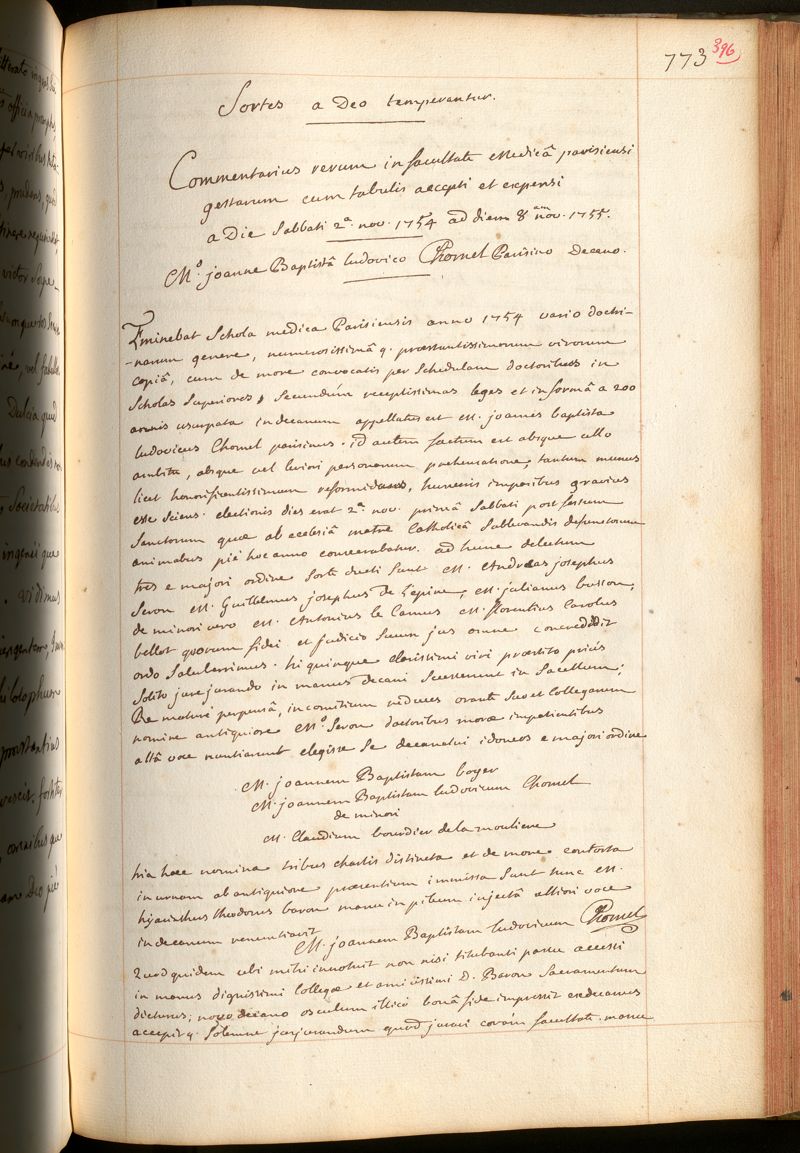 773 396
Sortes a Deo temperantur.
Commentarius rerum in facultate Medicâ parisiensi
gestarum cum tabulis accepti et expensi
a Die Sabbati 2ª. nov. 1754 ad diem 8 am nov. 1755.
M.º joanne Baptistâ ludovico Chomel Parisino Decano.
Eminebat Schola medica Parisiensis anno 1754 vario doctri-
-narum genere, numerosissimâ q. præstantissimorum virorum
copiâ, cum de more convocatis per Schedulam doctoribus in
Scholas Superiores, Secundúm receptissimas leges et in formâ a 200
annis usurpata in decanum appellatus est M. joannes baptista
ludovicus Chomel parisinus. id autem factum est absque ullo
ambitu, absque vel leviori personarum prehensatione, tantum munus
licet honorificentissimum reformidans, humeris imparibus gravius
esse Sciens. electionis dies erat 2ª. nov. primâ Sabbati post festum
Sanctorum quæ ab ecclesiâ matre Catholicâ Sublevandis defunctorum
animabus piè hoc anno consecrabatur. ad hunc delectum
tres e majori ordine Sorte ducti Sunt M. Andreas josephus
Seron M. Guillelmus josephus De L'epine, M. julianus busson,
de minori vero M. Antonius le Camus M. florentius Carolus
bellot quorum fidei et judicio Suum jus omne concredidit
ordo Saluberrimus. hi quinque clarissimi viri præstito priùs
Solito jurejurando in manus decani Secesserunt in Sacellum;
Re maturè perpensâ, in comitium reduces orante Suo et Collegarum
nomine antiquiore M.º Seron doctoribus moræ impatientibus
altâ voce nuntiarunt elegisse Se decanatui idoneos e majori ordine
M. joannem Baptistam boyer
M. joannem Baptistam ludovicum Chomel
de minori
M. Claudium bourdier de la mouliere
tria hæc nomina tribus chartis distincta et de more contorta
in urnam ab antiquiore præsentium immissa Sunt tunc M.
hyacinthus theodorus baron manu in pileum injectâ altiori voce
in decanum renuntiavit
M. joannem Baptistam ludovicum Chomel
Quod quidem ubi mihi innotuit non nisi titubanti passu accessi
in manus dignissimi Collegæ et amicissimi D. Baron Sacramentum
dicturus; novo decano osculum illicò bonâ fide impressit exdecanus
accepit q. Solemne jusjurandum quod juravi coràm facultate. manu